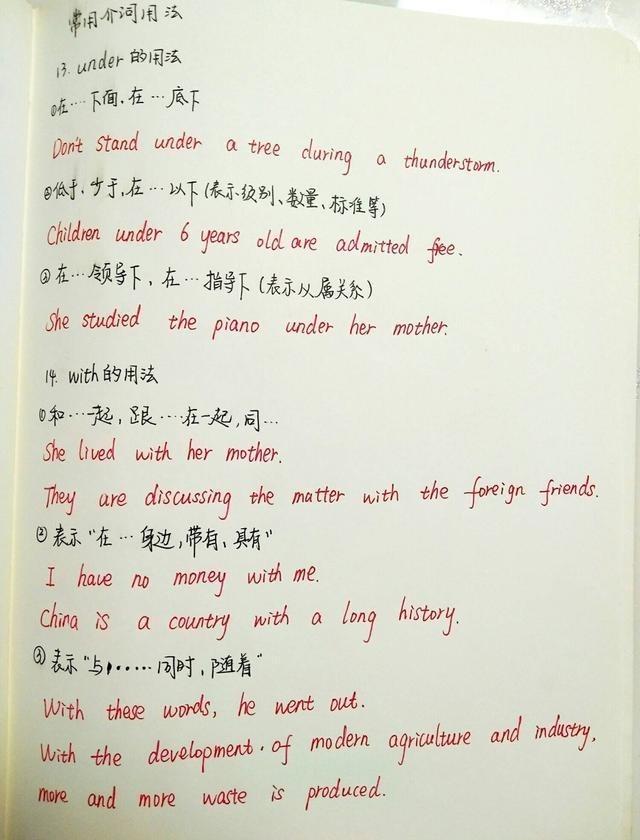 常用介词用法
13. under的用法
①在…下面,在…底下
Don't stand under a tree during a thunderstorm.
②低于、少于,在…以下(表示级别、数量、标准等)
Children under 6 years old are admitted free.
③在…领导下,在…指导下(表示从属关系)
She studied the piano under her mother.
14. with的用法
①和…一起,跟…在一起,同…
She lived with her mother.
They are discussing the matter with the foreign friends.
②表示"在…身边,带有、具有"
I have no money with me.
China is a country with a long history.
③表示"与……同时,随着"
With these words, he went out.
With the development. of modern agriculture and industry,
more and more waste is produced.